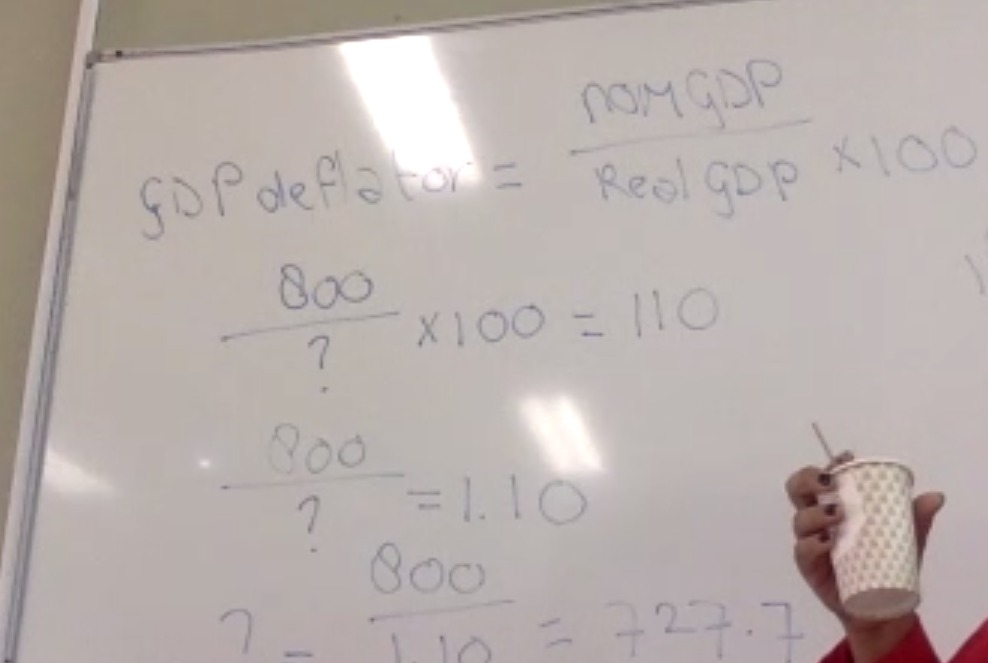 GDP deflator = nom GDP / Real GDP ×100
800 / ? ×100 = 110
800 / ? = 1.10
? = 800 / 1.10 = 727.7